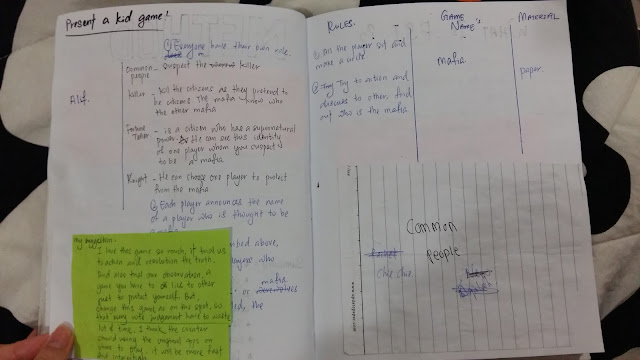 Present a kid game!
② Everyone have their own role.
Common people - suspect the killer
Alif.
killer - kill the citizens as they pretend to
be citizens. The mafia know who
the other mafia
Fortune Teller - is a citizen who has a supernatural
power. He can see the identity
of one player whom you suspect
to be a mafia.
Knight - He can choose one player to protect
from the mafia
③ Each player announces the name
of a player who is thought to be
above,
who
or mafia
the
My suggestion:
I love this game so much, it trial us
to action and revolution the truth.
And also trial our observation. A
game you have to lie to other
just to protect yourself. But
change this game as on the spot, so
that judgement have to waste
lot of time. I think the creator
should using the original apps on
phone to play. it will be more fast
and interesting
RULES.
GAME NAME's
MATERIAL
① All the player sit and
make a circle
mafia
paper.
② Try to action and
discuss to others, find
out who is the mafia
Common
People